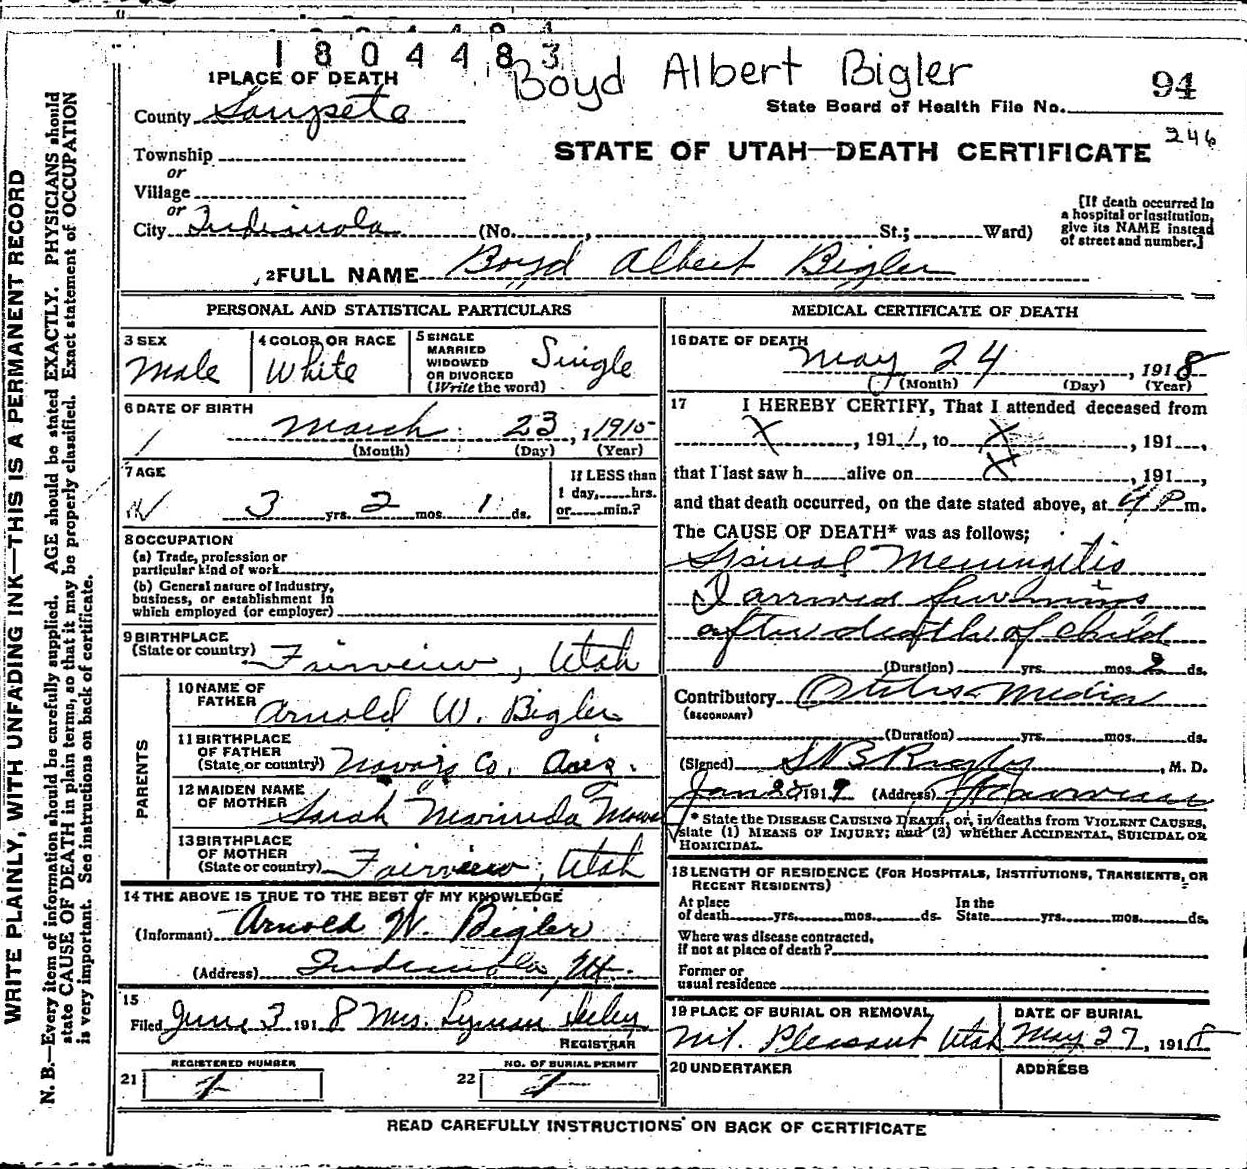 1804483
Boyd Albert Bigler
94
State Board of Health File No.
246
1 PLACE OF DEATH
County Sanpete
STATE OF UTAH—DEATH CERTIFICATE
Township
or
Village
or
City Indianola (No. , St.; Ward)
[If death occurred in
a hospital or institution,
give its NAME instead
of street and number.]
2 FULL NAME Boyd Albert Bigler
PERSONAL AND STATISTICAL PARTICULARS
3 SEX
Male
4 COLOR OR RACE
White
5 SINGLE
MARRIED
WIDOWED
OR DIVORCED
(Write the word)
Single
6 DATE OF BIRTH
March 23, 1915
(Month) (Day) (Year)
7 AGE
3 yrs. 2 mos. 1 ds.
If LESS than
1 day, hrs.
or min.?
8 OCCUPATION
(a) Trade, profession or
particular kind of work
(b) General nature of Industry,
business, or establishment in
which employed (or employer)
9 BIRTHPLACE
(State or country) Fairview, Utah
PARENTS
10 NAME OF
FATHER Arnold W. Bigler
11 BIRTHPLACE
OF FATHER
(State or country) Navajo Co. Ariz.
12 MAIDEN NAME
OF MOTHER Sarah
13 BIRTHPLACE
OF MOTHER
(State or country) Fairview, Utah
14 THE ABOVE IS TRUE TO THE BEST OF MY KNOWLEDGE
(Informant) Arnold W. Bigler
(Address) Indianola, Ut.
15
Filed June 3 1918 Mrs. Lyman Seeley
REGISTRAR
21
REGISTERED NUMBER
22
NO. OF BURIAL PERMIT
MEDICAL CERTIFICATE OF DEATH
16 DATE OF DEATH
May 24, 1918
(Month) (Day) (Year)
17 I HEREBY CERTIFY, That I attended deceased from
X, 191 , to X, 191 ,
that I last saw h alive on X, 191
and that death occurred, on the date stated above, at 4 P m.
The CAUSE OF DEATH* was as follows:
Spinal Meningitis
I arrived few mins
after death of child
(Duration) yrs. mos. 2 ds.
Contributory Otitis Media
(SECONDARY)
(Duration) yrs. mos. ds.
(Signed) , M. D.
Jan 28, 1919 (Address) Fairview
* State the DISEASE CAUSING DEATH, or, in deaths from VIOLENT CAUSES,
state (1) MEANS OF INJURY; and (2) whether ACCIDENTAL, SUICIDAL OR
HOMICIDAL.
18 LENGTH OF RESIDENCE (FOR HOSPITALS, INSTITUTIONS, TRANSIENTS, OR
RECENT RESIDENTS)
At place
of death yrs. mos. ds.
In the
State yrs. mos. ds.
Where was disease contracted,
if not at place of death?
Former or
usual residence
19 PLACE OF BURIAL OR REMOVAL
Mt. Pleasant Utah
DATE OF BURIAL
May 27, 1918
20 UNDERTAKER
ADDRESS
READ CAREFULLY INSTRUCTIONS ON BACK OF CERTIFICATE
WRITE PLAINLY, WITH UNFADING INK—THIS IS A PERMANENT RECORD
N. B.—Every item of information should be carefully supplied. AGE should be stated EXACTLY. PHYSICIANS should
state CAUSE OF DEATH in plain terms, so that it may be properly classified. Exact statement of OCCUPATION
is very important. See instructions on back of certificate.